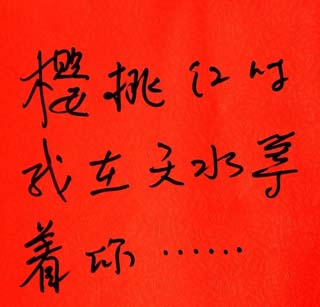 樱桃红时
我在天水等
着你……